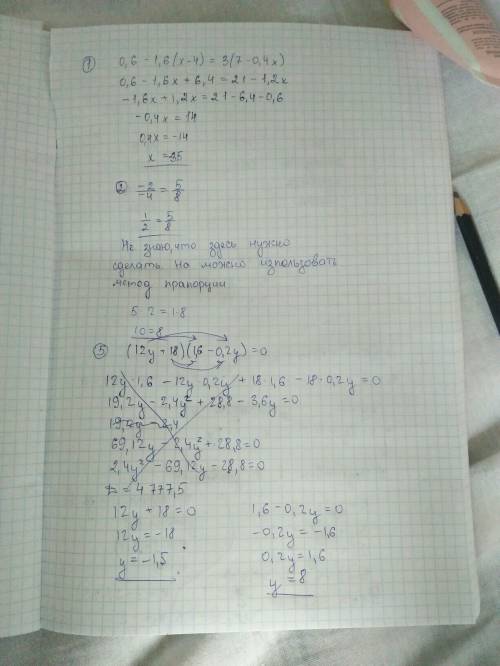 ① 0,6 - 1,6(x-4) = 3(7-0,4x)
0,6 - 1,6x + 6,4 = 21 - 1,2x
-1,6x + 1,2x = 21 - 6,4 - 0,6
-0,4x = 14
0,4x = -14
x = -35
② -2/-4 = 5/8
1/2 = 5/8
Не знаю, что здесь нужно
сделать. На можно изпользовать
метод прапорции
5 · 2 = 1 · 8
10 = 8
⑤ (12y + 18)(1,6 - 0,2y) = 0
12y · 1,6 - 12y · 0,2y + 18 · 1,6 - 18 · 0,2y = 0
19,2y - 2,4y² + 28,8 - 3,6y = 0
19,2y - 2,4
69,12y - 2,4y² + 28,8 = 0
2,4y² - 69,12y - 28,8 = 0
D = 4777,5
12y + 18 = 0
12y = -18
y = -1,5
1,6 - 0,2y = 0
-0,2y = -1,6
0,2y = 1,6
y = 8